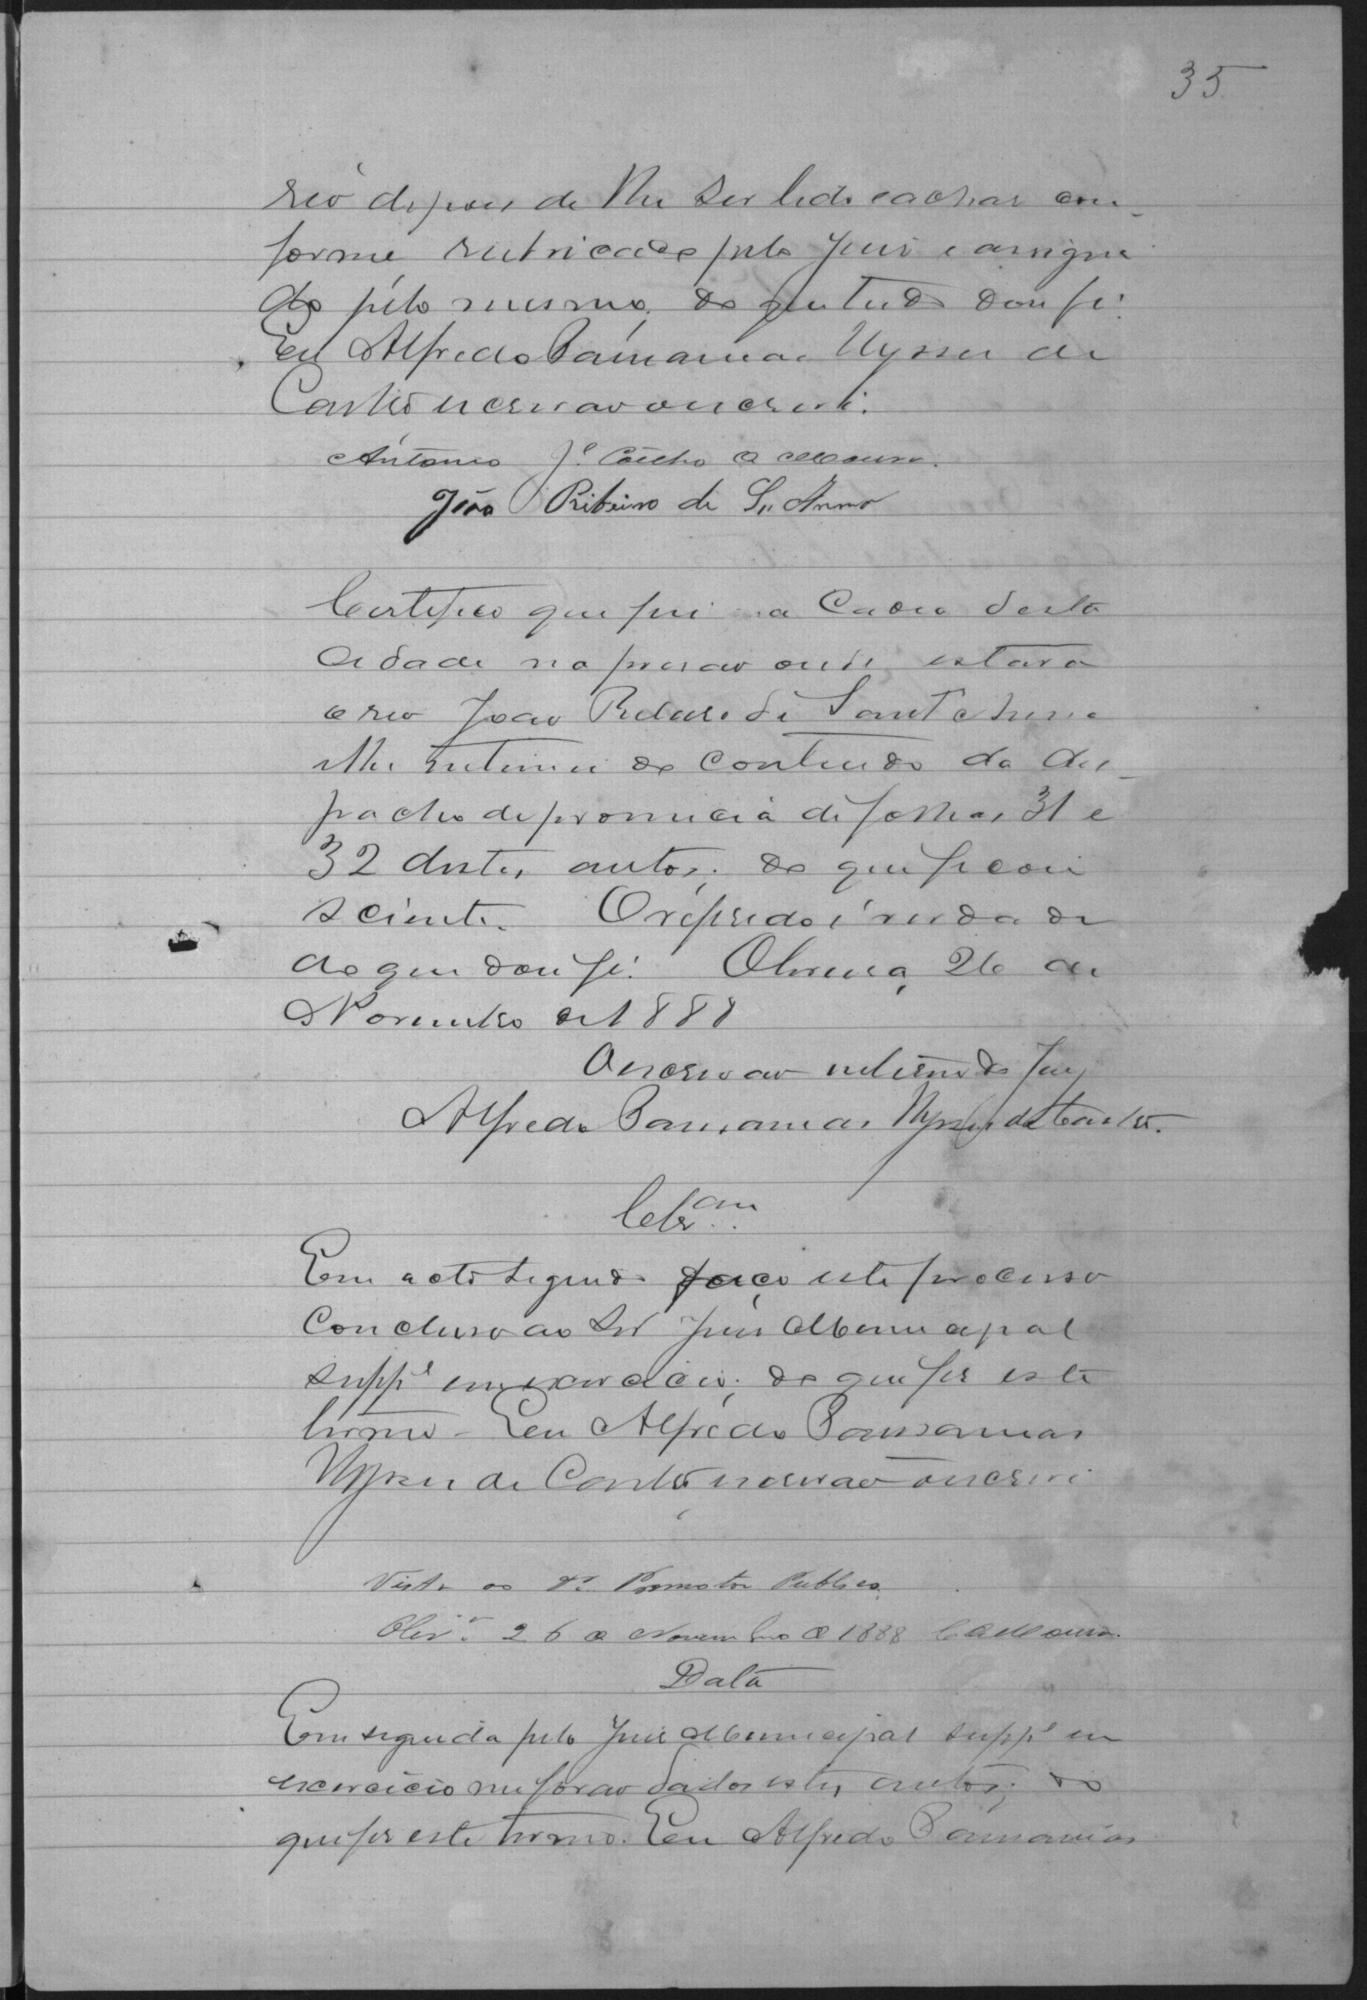 35
réo depois de lhe ser lido e achar con-
forme, rubricado pelo Juiz e assigna
do pelo mesmo, do que tudo dou fé.
Eu Alfredo Pausanias Ulysses de
Castro escrivão o escrevi.
Antonio Je. Coelho de Moura.
João Ribeiro de S. Anna
Certifico que fui a Cadeia desta
Cidade na prisão onde estava
o reo João Ribeiro de Sant'Anna
e lhe intimei do conteudo do des-
pacho de pronuncia de folhas 31 e
32 destes autos; do que ficou
sciente. O referido é verdade
do que dou fé. Oliveira, 26 de
Novembro de 1888
O escrivão interino do Jury
Alfredo Pausanias Ulysses de Castro.
Clsam
Em acto seguido faço este processo
Concluso ao Snr Juiz Municipal
suppe em exercicio; do que fiz este
termo - Eu Alfredo Pausanias
Ulysses de Castro, escrivão o escrevi
Vista ao Dr. Promotor Publico.
Olivra. 26 de Novembro de 1888 C de Moura.
Data
Em seguida pelo Juiz Municipal suppe em
exercicio me forão dados estes autos; do
que fiz este termo. Eu Alfredo Pausanias